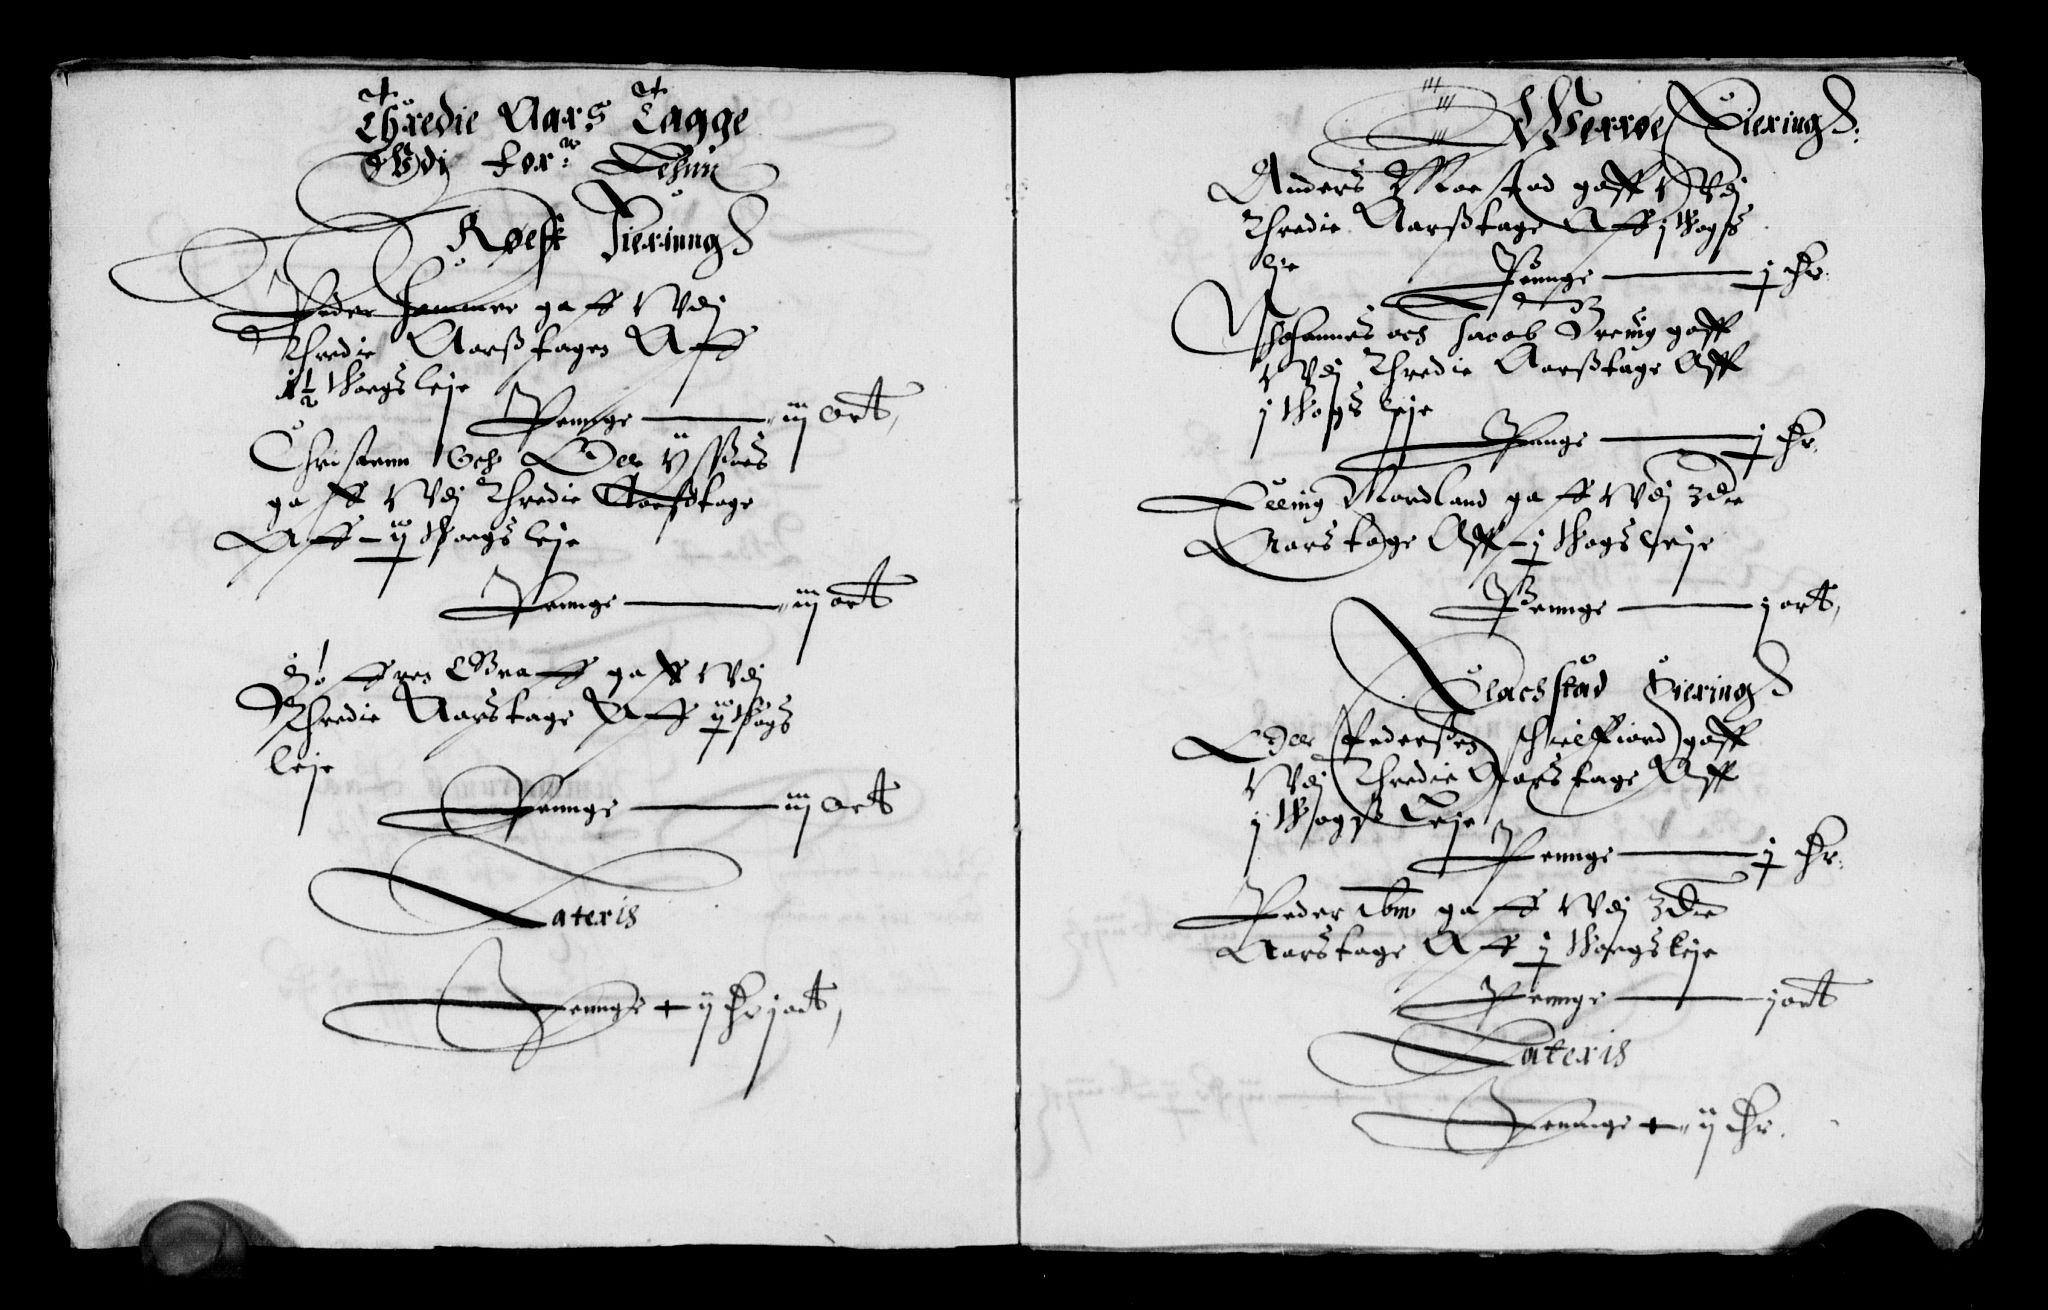 Thredie Aars Tagge
Vdj for:ne Lehnn
Røest Fierinng
Peder Hammer gaff Vdj
Thredie Aarsstagen Aff
1½ Woegs leje
Penge — iij ort,
Christenn Och Oele
gaff Vdj Thredie Aarsstage
Aff — ij Woegs leje
Penge — iij ort
Graff gaff Vdj
Thredie Aarstage Aff ij Wogs
leje
Penge — iij ort
Lateris
Penge + ij dr j ort,
Werrøe Fiering
Anders Moestad gaff Vdj
Thredie Aarsstage Aff j Wogs
leje
Penge — j dr.
Johannes och Jacob gaff
Vdj Thredie Aarsstage Aff
j Wogs leje
Penge — j dr.
Elling Nordland gaff Vdj 3die
Aarstage Aff — j Wogs leje
Penge — j ort,
Flachstad Fiering
Oele Pederssen gaff
Vdj Thredie Aarstage Aff
j Wogss Leje
Penge — j dr.
Peder ibm gaff Vdj 3die
Aarstage Aff j Woegs leje
Penge — j ort
Lateris
Penge + ij dr.